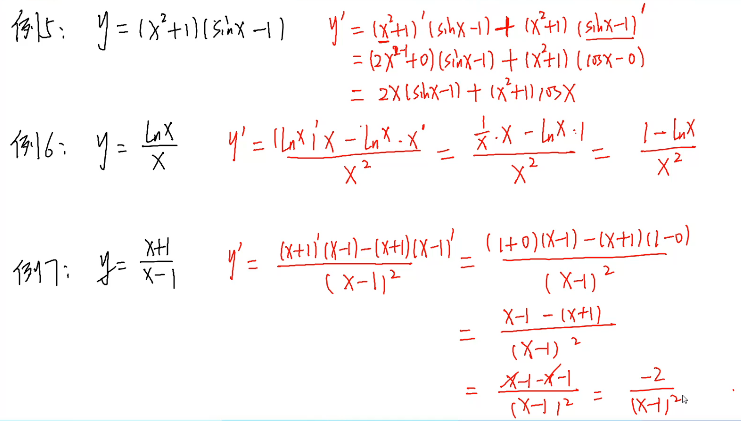 例5: y = (x²+1)(sinx-1)  y' = (x²+1)'(sinx-1) + (x²+1)(sinx-1)'
= (2x²⁻¹+0)(sinx-1) + (x²+1)(cosx-0)
= 2x(sinx-1) + (x²+1)cosx
例6: y = lnx/x  y' = ((lnx)'x - lnx·x')/x² = (1/x·x - lnx·1)/x² = (1-lnx)/x²
例7: y = (x+1)/(x-1)  y' = ((x+1)'(x-1)-(x+1)(x-1)')/(x-1)² = ((1+0)(x-1)-(x+1)(1-0))/(x-1)²
= (x-1-(x+1))/(x-1)²
= (x-1-x-1)/(x-1)² = -2/(x-1)²